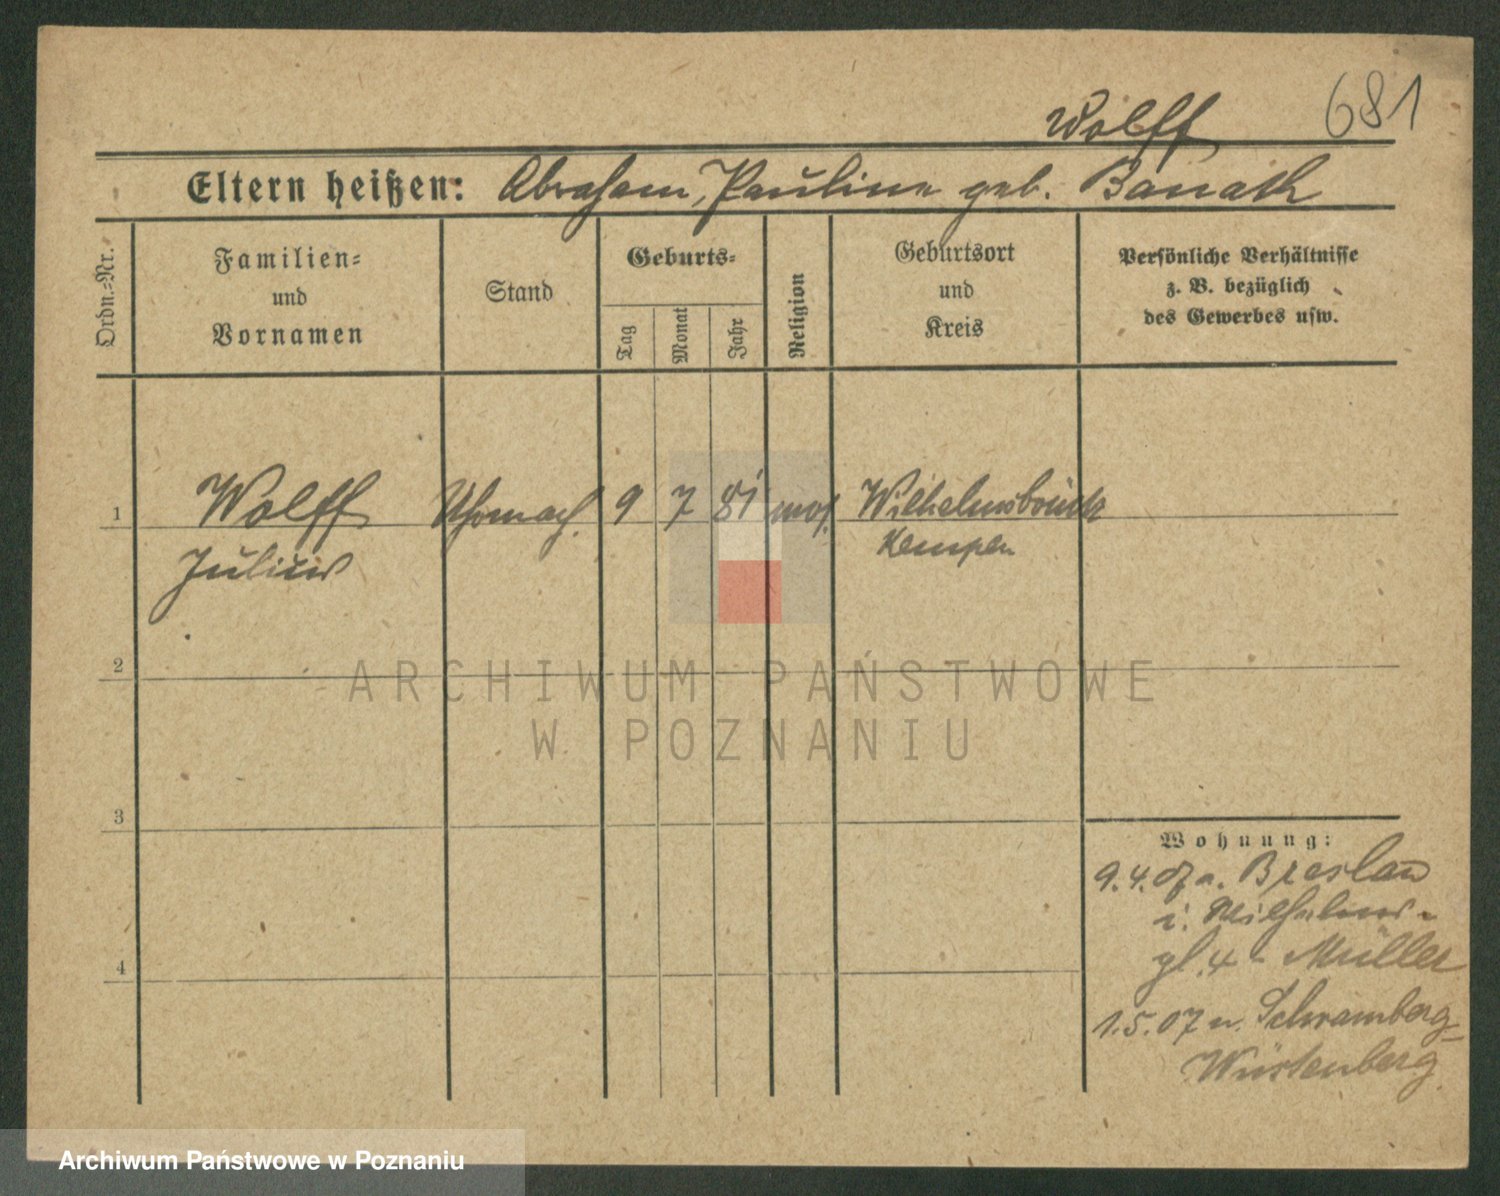 681
Wolff
Eltern heißen: Abraham, Pauline geb. Banath
Ordn.=Nr.
Familien=
und
Vornamen
Stand
Geburts=
Tag
Monat
Jahr
Religion
Geburtsort
und
Kreis
Persönliche Verhältnisse
z. B. bezüglich
des Gewerbes usw.
1 Wolff Uhrmach. 9 7 81 mos. Wilhelmsbrück
Julius Kempen
2
3
4
Wohnung:
9.4.07 a. Breslau
i. Wilhelms-
pl. 4 - Müller
1.5.07 n. Schramberg-
Würtenberg
ARCHIWUM PAŃSTWOWE
W POZNANIU
Archiwum Państwowe w Poznaniu